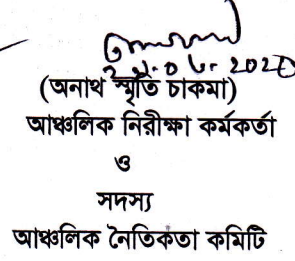 (অনাথ স্মৃতি চাকমা)
আঞ্চলিক নিরীক্ষা কর্মকর্তা
ও
সদস্য
আঞ্চলিক নৈতিকতা কমিটি